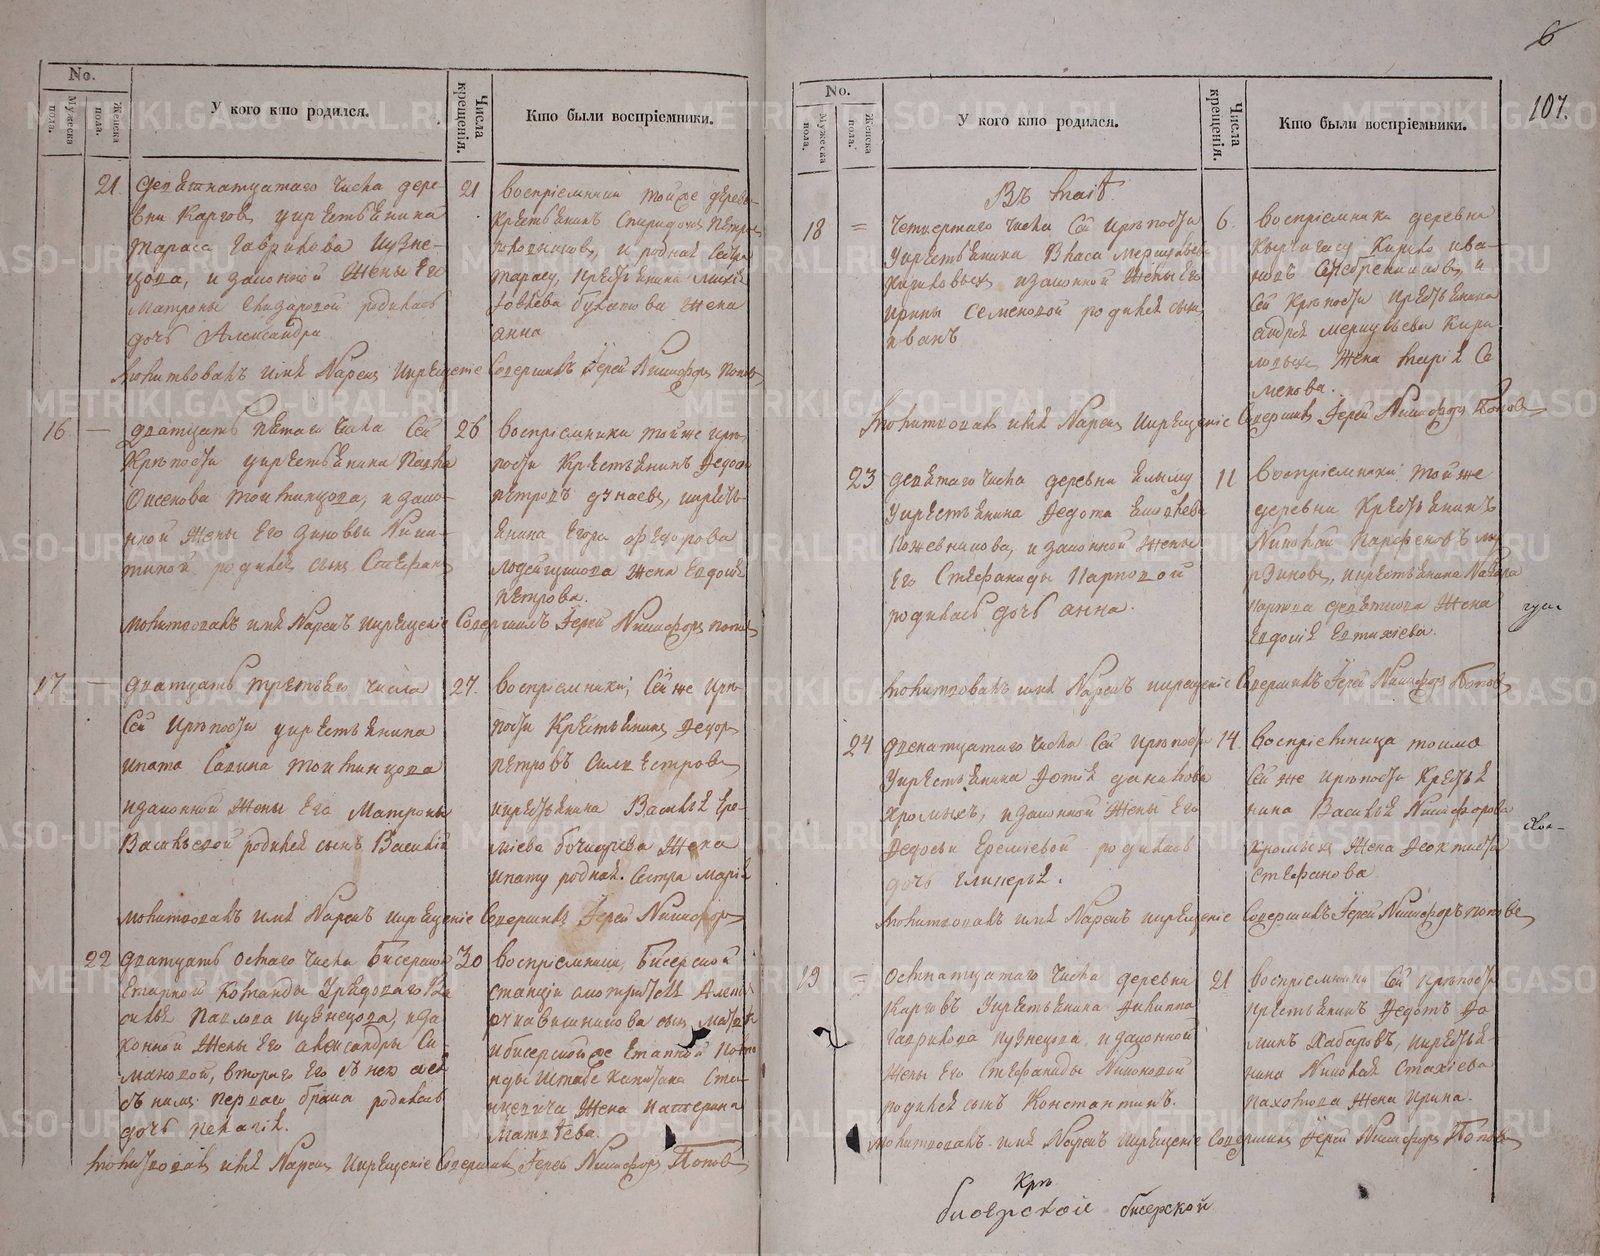 No.
Мужеска пола.
Женска пола.
У кого кто родился.
Числа крещенія.
Кто были воспріемники.
21
девятнатцатаго числа дере-
вни Каргов уирестьянина
Тараса Гаврилова Кузне-
цова, и законной жены Его
Матроны родилась
дочь Александра
21
воспріемники тойже дерев
крестьянинъ Спиридонъ Петро
и родная Сестра
жена
анна
молитвовалъ имя нарекъ и крещеніе Совершилъ Іерей Никифоръ Поповъ
16
—
дватцать пятаго числа Сей
Крѣпости укрестьянина Павла
законной жены Его Зиновьи Ники-
тиной родился сынъ Стефанъ
26
воспріемники тойже крѣ-
пости Крестьянинъ Федотъ
Петровъ дунаевъ, икресть-
янина Егора Федорова
жена Евдокія
Петрова.
молитвовалъ имя нарекъ и крещеніе Совершилъ Іерей Никифоръ Поповъ
17
—
дватцать третьего числа
Сей крѣпости укрестьянина
ипата Савина
изаконной жены Его Матроны
Васильевой родился сынъ Василій
27.
воспріемники; Сей же крѣ-
пости Крестьянинъ Федоръ
Петровъ Силвестровъ
икрестьянина Василья Ере-
мѣева жена
ипату родная Сестра Марія
молитвовалъ имя нарекъ и крещеніе Совершилъ Іерей Никифоръ
22
дватцать осмаго числа Бисерской
Етапной Команды Урядоваго
Павлова кузнецова, иза-
конной жены Его александры Си-
мановой, втораго Его съ нею а ея
съ нимъ перваго брака родилась
дочь Пелагія.
30
воспріемники, Бисерской
станціи смотрителя Алек
вишнякова сынъ Матвѣй
ибисерскойже Етапной Коман
ды Штабс Капитана Ста-
жена Катерина
Матвѣева.
молитвовалъ имя нарекъ и крещеніе Совершилъ Іерей Никифоръ Поповъ
6
107.
No.
Мужеска пола.
Женска пола.
У кого кто родился.
Числа крещенія.
Кто были воспріемники.
Въ маіѣ
18
=
Четвертаго числа Сей Крѣпости
Укрестьянина Власа Меркурьева
Кириловыхъ изаконной жены Его
Ирины Семеновой родился сынъ
иванъ
6.
воспріемники деревни
Киргишану Кирило ива-
новъ Серебрениковъ, и
Сей Крѣпости крестьянина
андрея меркурьева Кири
ловыхъ жена марія Се
менова.
молитвовалъ имя нарекъ и крещеніе Совершилъ Іерей Никифоръ Поповъ
23
девятаго числа деревни
Укрестьянина Федота
Кожевникова, и законной жены
Его Стефаниды Карповой
родилась дочь анна.
11
воспріемники: той же
деревни Крестьянинъ
Николай Парфеновъ
икрестьянина Назара
карпова девяткова жена
Евдокія Евтихіева.
молитвовалъ имя нарекъ и крещеніе Совершилъ Іерей Никифоръ Поповъ
24
двенатцатаго числа Сей крѣпости
Укрестьянина Фотія данилова
Хромыхъ, изаконной жены Его
Федосьи Еремѣевой родилась
дочь Гликерія.
14
воспріемница токмо
Сей же крѣпости Крестья
нина Василья Никифорова
хромыхъ жена Феоктиста
Стефанова
молитвовалъ имя нарекъ и крещеніе Совершилъ Іерей Никифоръ Поповъ
19
=
осмнатцатаго числа деревни
Карговъ Укрестьянина Филиппа
Гаврилова кузнецова, изаконной
жены Его Стефаниды Никоновой
родился сынъ Константинъ.
21
воспріемники Сей крѣпости
крестьянинъ Федотъ Фо
минъ Хабаровъ, икрестья-
нина Николая Стахіева
пахомова жена Ирина.
молитвовалъ имя нарекъ и крещеніе Совершилъ Іерей Никифоръ Поповъ
Крѣ
бисерской бисерской
METRIKI.GASO-URAL.RU